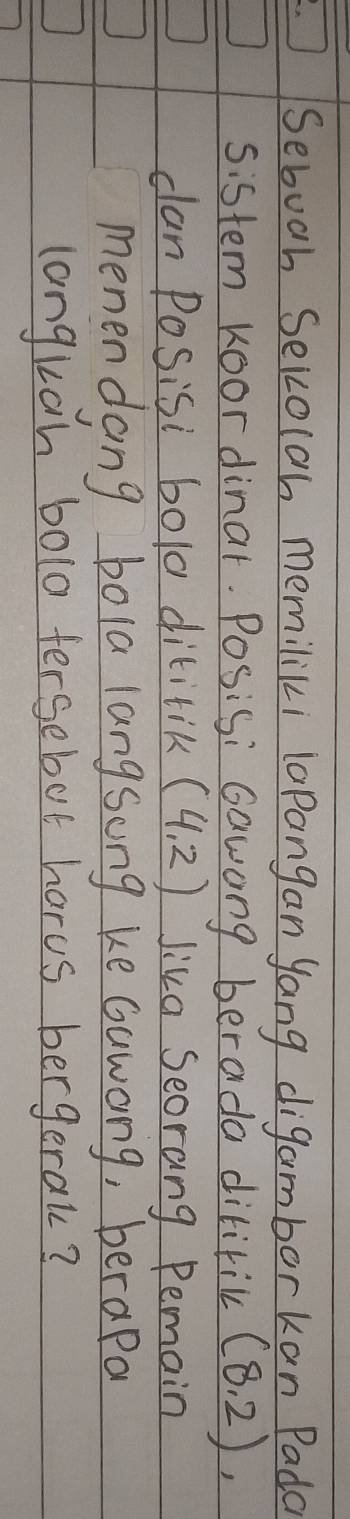 2. Sebuah Sekolah memiliki lapangan yang digambarkan Pada
Sistem koordinat. Posisi Gawang berada dititik (8,2),
dan Posisi bola dititik (4,2) Jika Seorang Pemain
menendang bola langsung ke Gawang, berapa
langkah bola tersebut harus bergerak?